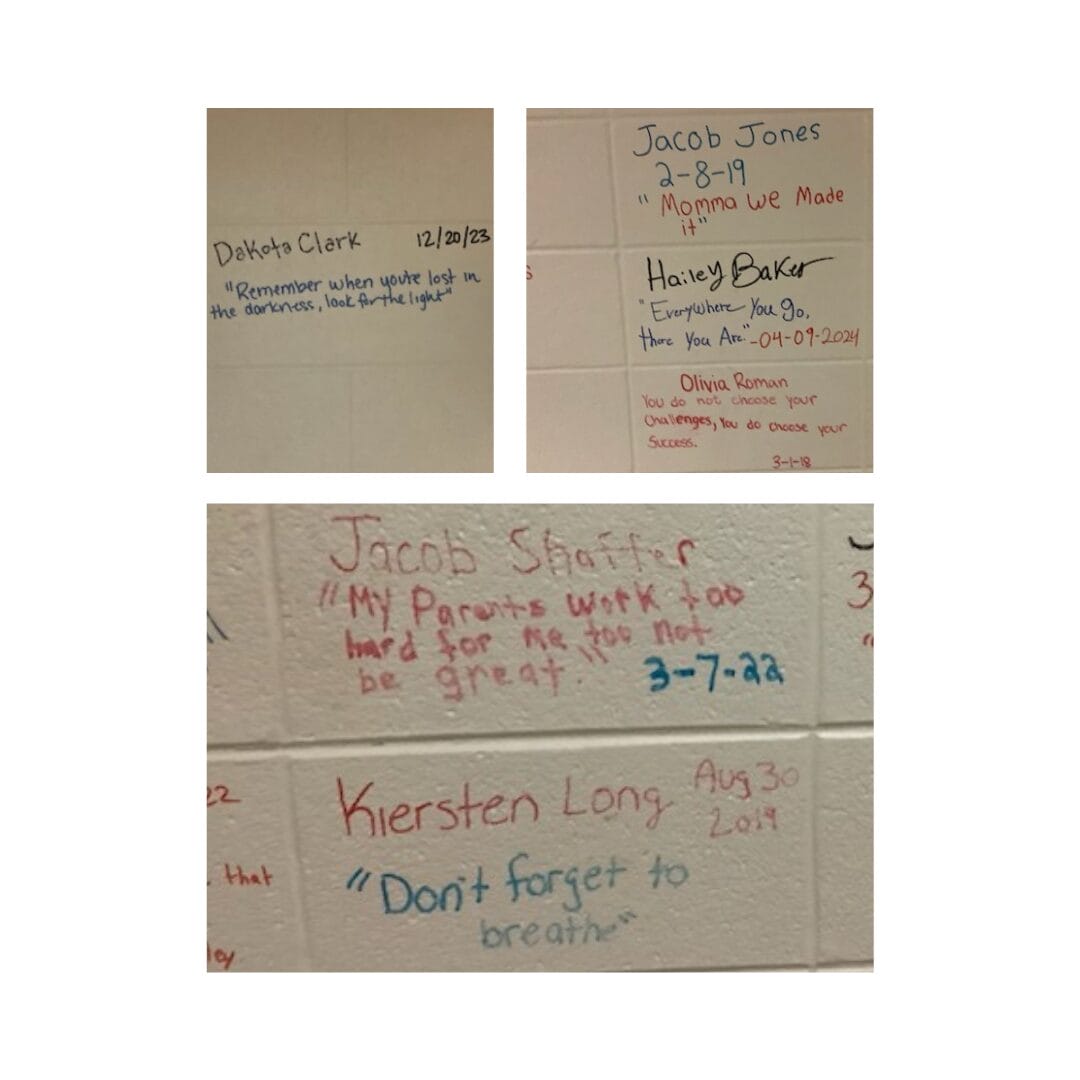 Dakota Clark 12/20/23
"Remember when you're lost in
the darkness, look for the light"
Jacob Jones
2-8-19
"Momma we Made
it"
s
Hailey Baker
"Everywhere You go,
there You Are" -04-09-2024
Olivia Roman
You do not choose your
Challenges, You do choose your
Success.
3-1-18
Jacob Shaffer
"My Parents work too
hard for me too not
be great." 3-7-22
3
22
Kiersten Long Aug 30
2019
that
"Don't forget to
breathe"